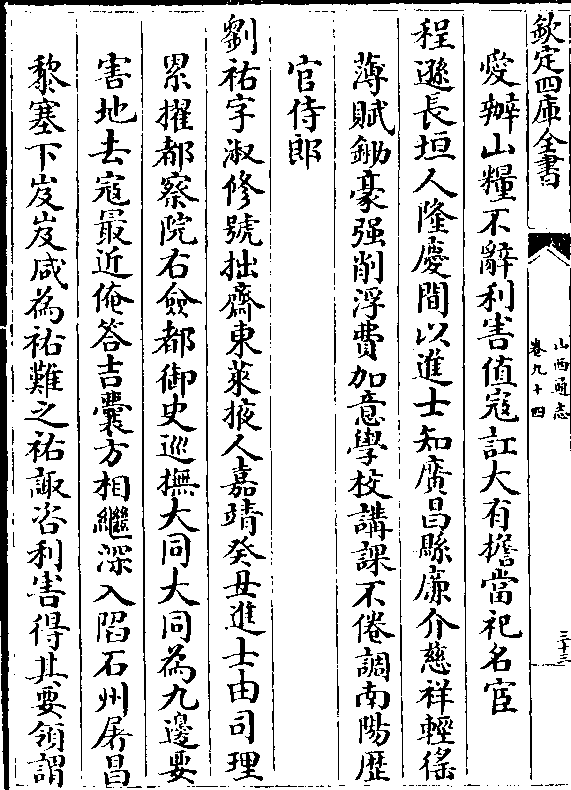 欽定四庫全書
山西通志
卷九十四
三十三
愛辦山糧不辭利害值寇訌大有擔當祀名宦
程遜長垣人隆慶間以進士知廣昌縣廉介慈祥輕徭
薄賦鋤豪强削浮費加意學校講課不倦調南陽歴
官侍郎
劉祐字淑修號拙齋東萊掖人嘉靖癸丑進士由司理
累擢都察院右僉都御史巡撫大同大同為九邊要
害地去寇最近俺答吉囊方相繼深入陷石州屠昌
黎塞下岌岌咸為祐難之祐諏咨利害得其要領謂